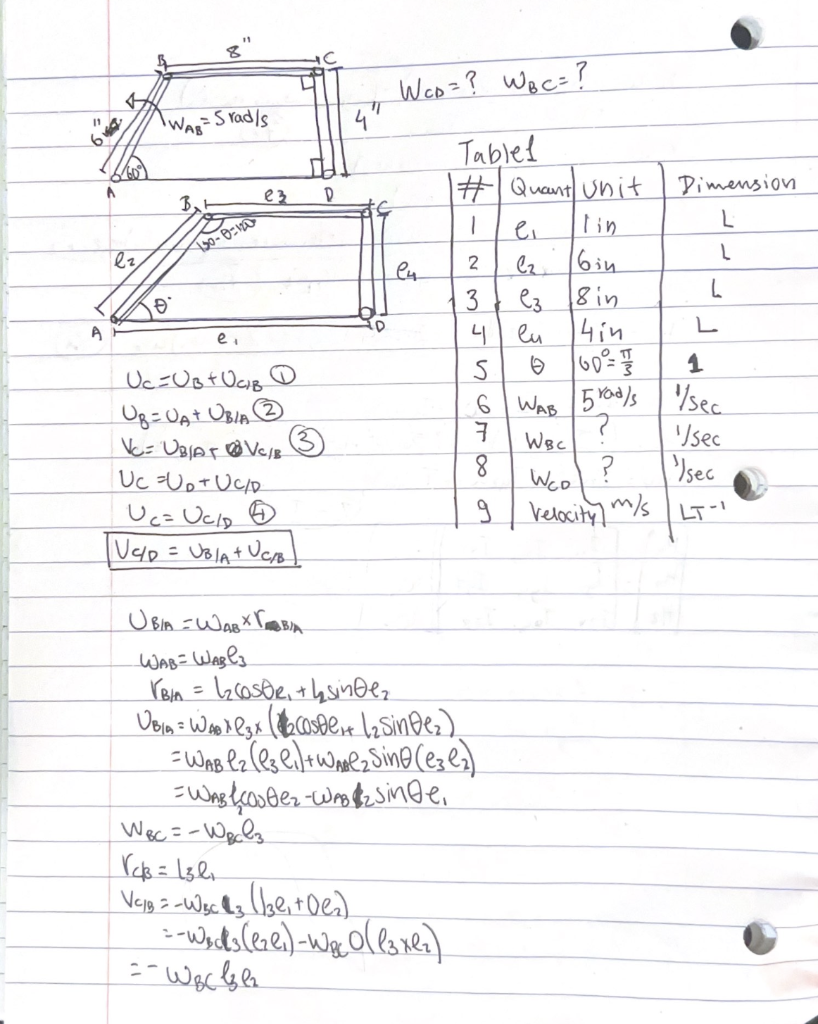 8"
B C
W_CD = ? W_BC = ?
6" W_AB = 5 rad/s 4"
60°
A D
Table 1
# Quant unit Dimension
1 l₁ 1in L
2 l₂ 6in L
3 l₃ 8in L
4 l₄ 4in L
5 θ 60° = π/3 1
6 W_AB 5 rad/s 1/sec
7 W_BC ? 1/sec
8 W_CD ? 1/sec
9 Velocity m/s LT⁻¹
B l₃ C
l₂ l₄
θ°
A l₁ D
U_C = U_B + U_C/B ①
U_B = U_A + U_B/A ②
V_C = U_B/A + V_C/B ③
U_C = U_D + U_C/D
U_C = U_C/D ④
V_C/D = U_B/A + U_C/B
U_B/A = W_AB × r_B/A
W_AB = W_AB e₃
r_B/A = l₂cosθe₁ + l₂sinθe₂
U_B/A = W_AB × e₃ × (l₂cosθe₁ + l₂sinθe₂)
= W_AB l₂(e₃e₁) + W_AB l₂ sinθ(e₃e₂)
= W_AB l₂cosθe₂ - W_AB l₂ sinθe₁
W_BC = -W_BC e₃
r_C/B = l₃e₁
V_C/B = -W_BC e₃(l₃e₁ + 0e₂)
= -W_BC l₃(e₂e₁) - W_BC 0(e₃×e₂)
= -W_BC l₃e₂